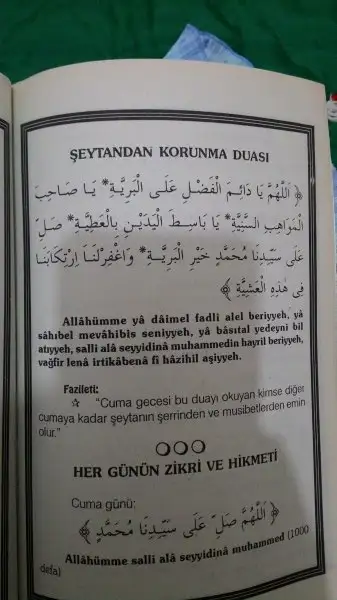 ŞEYTANDAN KORUNMA DUASI
﴿ اَللّٰهُمَّ يَا دَائِمَ الْفَضْلِ عَلَى الْبَرِيَّةِ* يَا صَاحِبَ
الْمَوَاهِبِ السَّنِيَّةِ* يَا بَاسِطَ الْيَدَيْنِ بِالْعَطِيَّةِ* صَلِّ
عَلَى سَيِّدِنَا مُحَمَّدٍ خَيْرِ الْبَرِيَّةِ* وَاغْفِرْلَنَا اِرْتِكَابَنَا
فِى هٰذِهِ الْعَشِيَّةِ ﴾
Allâhümme yâ dâimel fadli alel beriyyeh, yâ
sâhıbel mevâhibis seniyyeh, yâ bâsıtal yedeyni bil
atıyyeh, salli alâ seyyidinâ muhammedin hayril beriyyeh,
vağfir lenâ irtikâbenâ fî hâzihil aşiyyeh.
Fazileti:
☆ "Cuma gecesi bu duayı okuyan kimse diğer
cumaya kadar şeytanın şerrinden ve musibetlerden emin
olur."
HER GÜNÜN ZİKRİ VE HİKMETİ
Cuma günü:
﴿ اَللّٰهُمَّ صَلِّ عَلَى سَيِّدِنَا مُحَمَّدٍ ﴾
Allâhümme salli alâ seyyidinâ muhammed (1000
defa)